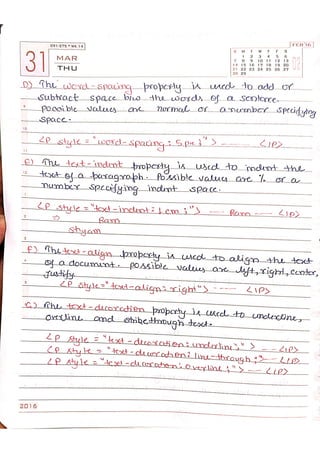 091-275 • WK 14
31
MAR
THU
FEB '16
S M T W T F S
1 2 3 4 5 6
7 8 9 10 11 12 13
14 15 16 17 18 19 20
21 22 23 24 25 26 27
28 29
D) The word-spacing property is used to add or
subtract space b/w the words of a sentence.
possible values are normal or a number specifying
space.
<P style = "word-spacing : 5px;"> ------ </P>
E) The text-indent property is used to indent the
text of a paragraph. Possible values are % or a
number specifying indent space.
<P style = "text-indent : 1cm;"> ---- Ram ---- </P>
⇒ Ram
Shyam
F) The text-align property is used to align the text
of a document. possible values are left, right, center,
justify.
<P style = "text-align : right"> ---- </P>
G) The text-decoration property is used to underline,
overline and text.
<P style = "text-decoration : underline;"> -- </P>
<P style = "text-decoration : line-through;"> -- </P>
<P style = "text-decoration : overline;"> --- </P>
2016